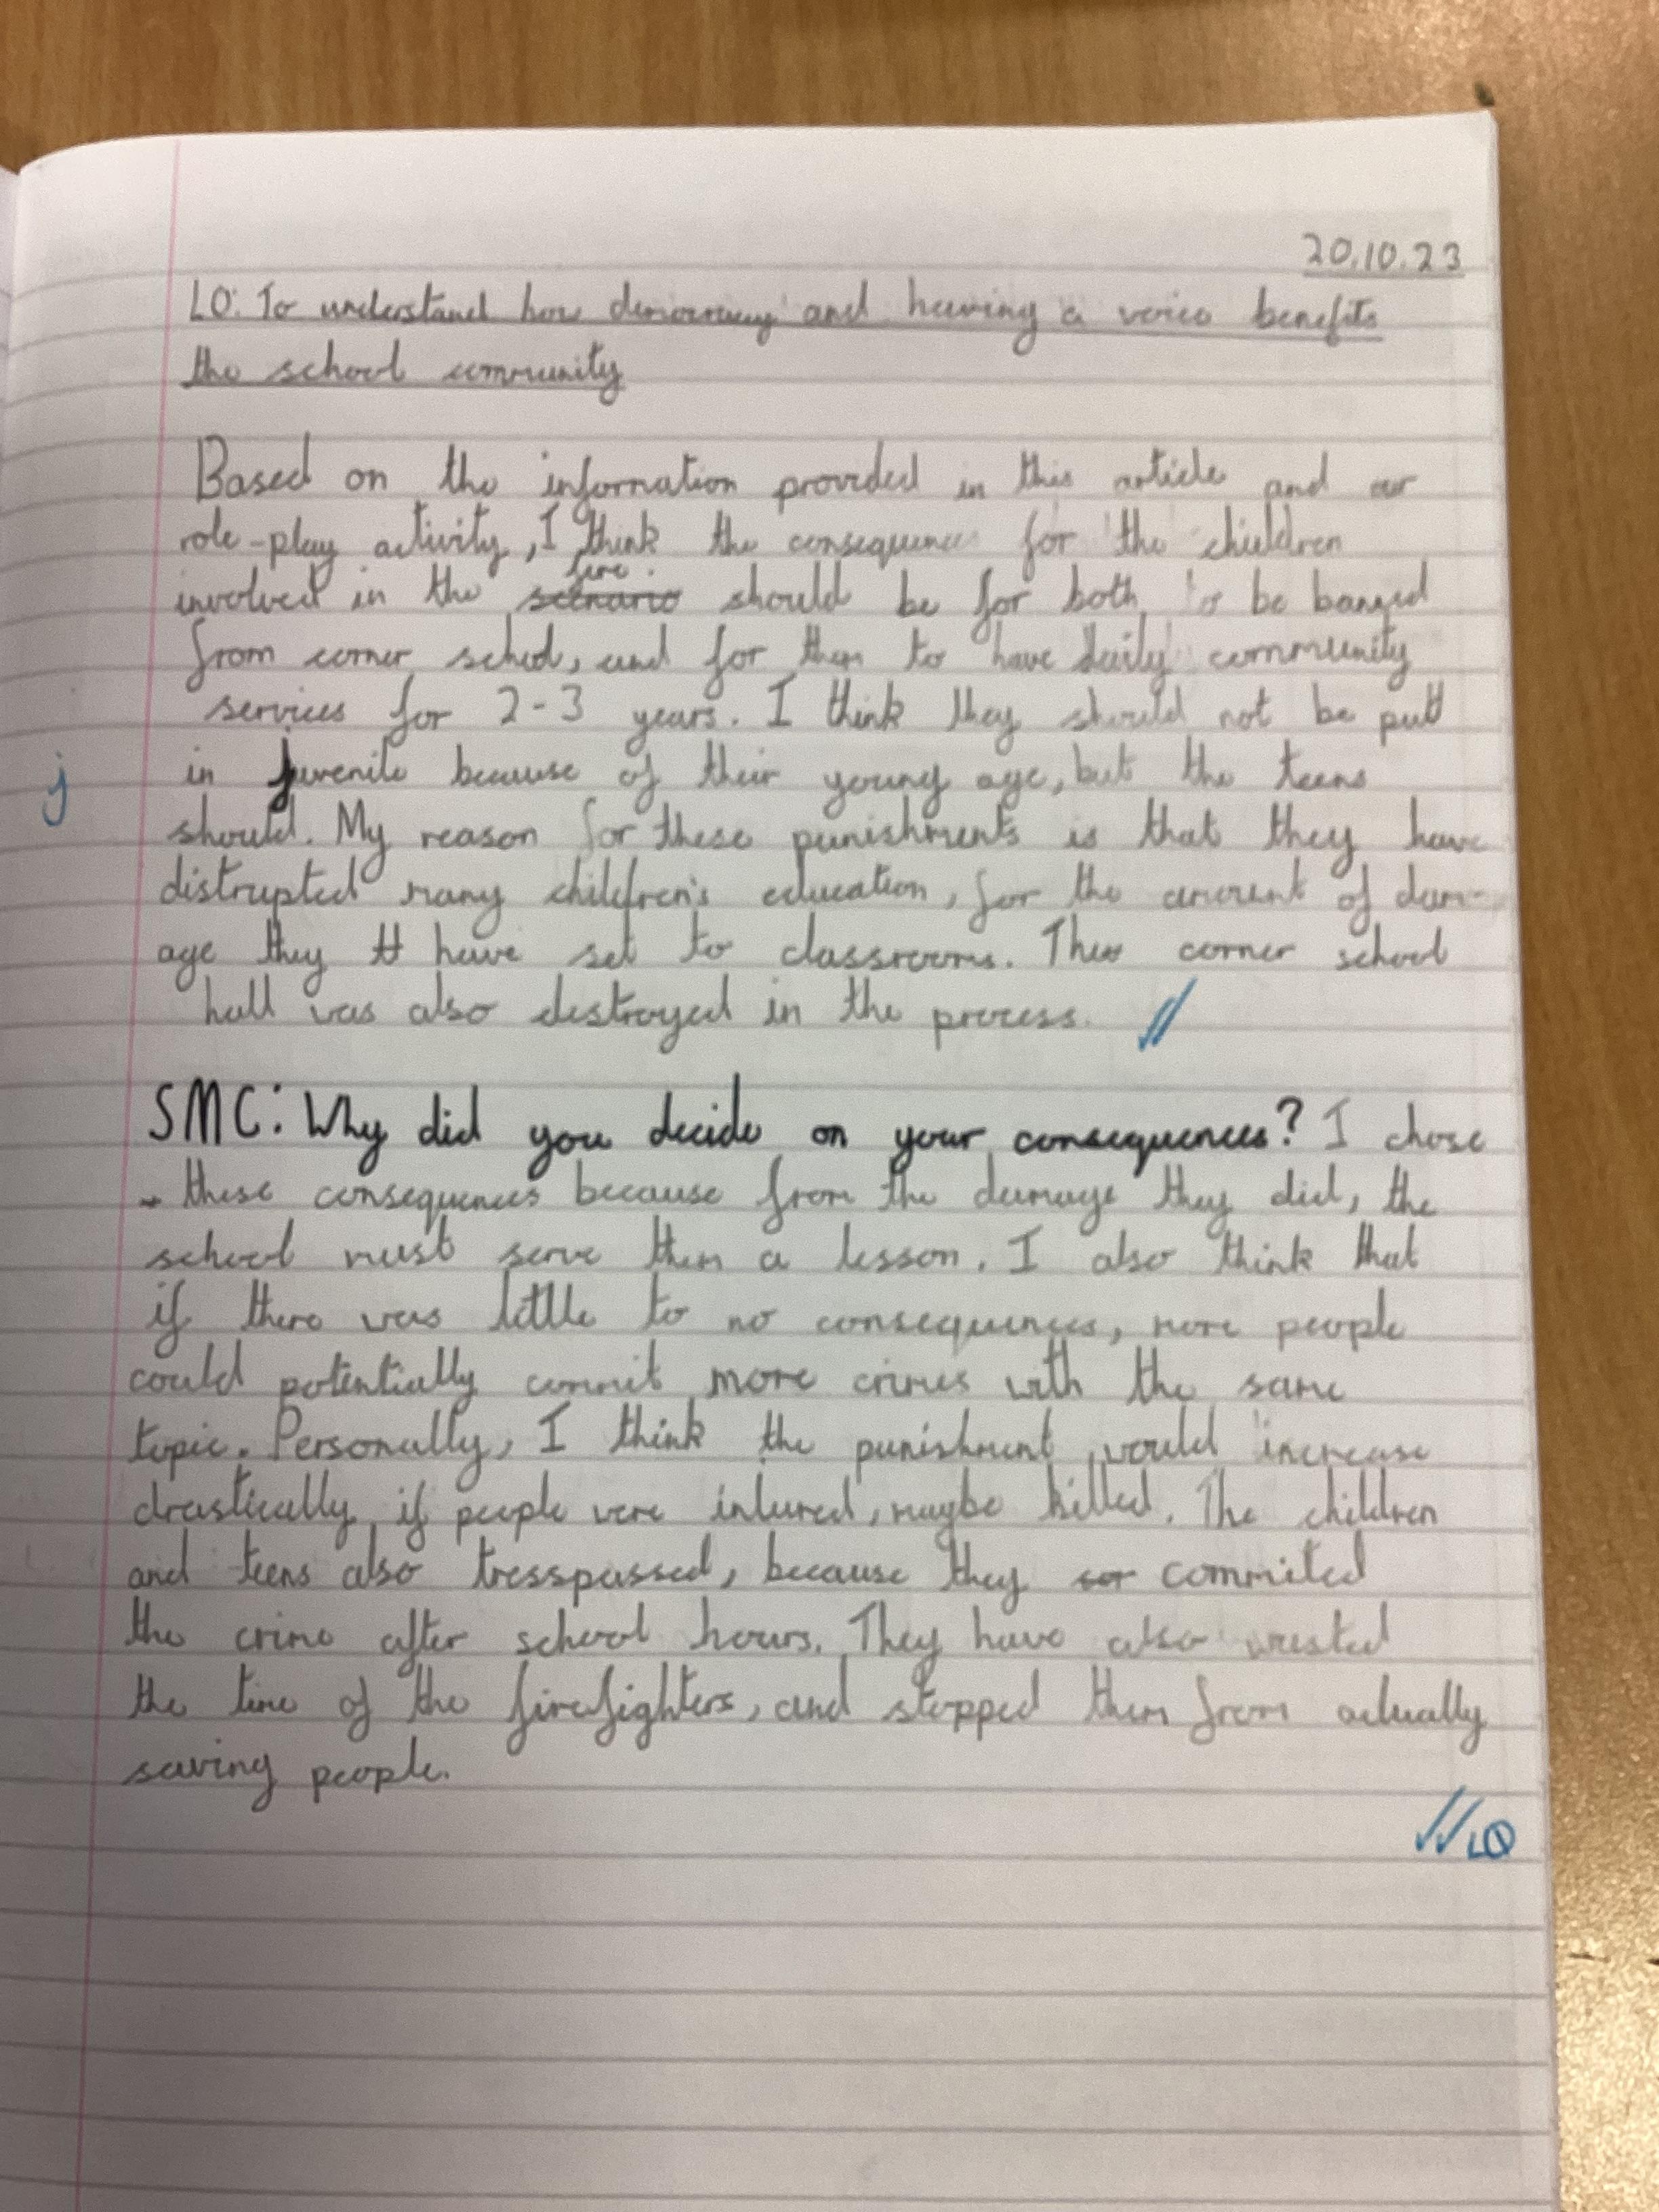 20.10.23
LO: To understand how democracy and having a voice benefits
the school community
Based on the information provided in this article and our
role-play activity, I think the consequence for the children
fire
involved in the scenario should be for both to be banned
from corner school, and for them to have daily community
services for 2-3 years. I think they should not be putt
j
in juvenile because of their young age, but the teens
should. My reason for these punishments is that they have
distrupted many children's education, for the amount of dam-
age they tt have set to classrooms. The corner school
hall was also destroyed in the process.
SMC: Why did you decide on your consequences? I chose
these consequences because from the damage they did, the
school must serve them a lesson. I also think that
if there was little to no consequences, more people
could potentially commit more crimes with the same
topic. Personally, I think the punishment would increase
drastically if people were injured, maybe killed. The children
and teens also tresspassed, because they commited
the crime after school hours. They have also wasted
the time of the firefighters, and stopped them from actually
saving people.